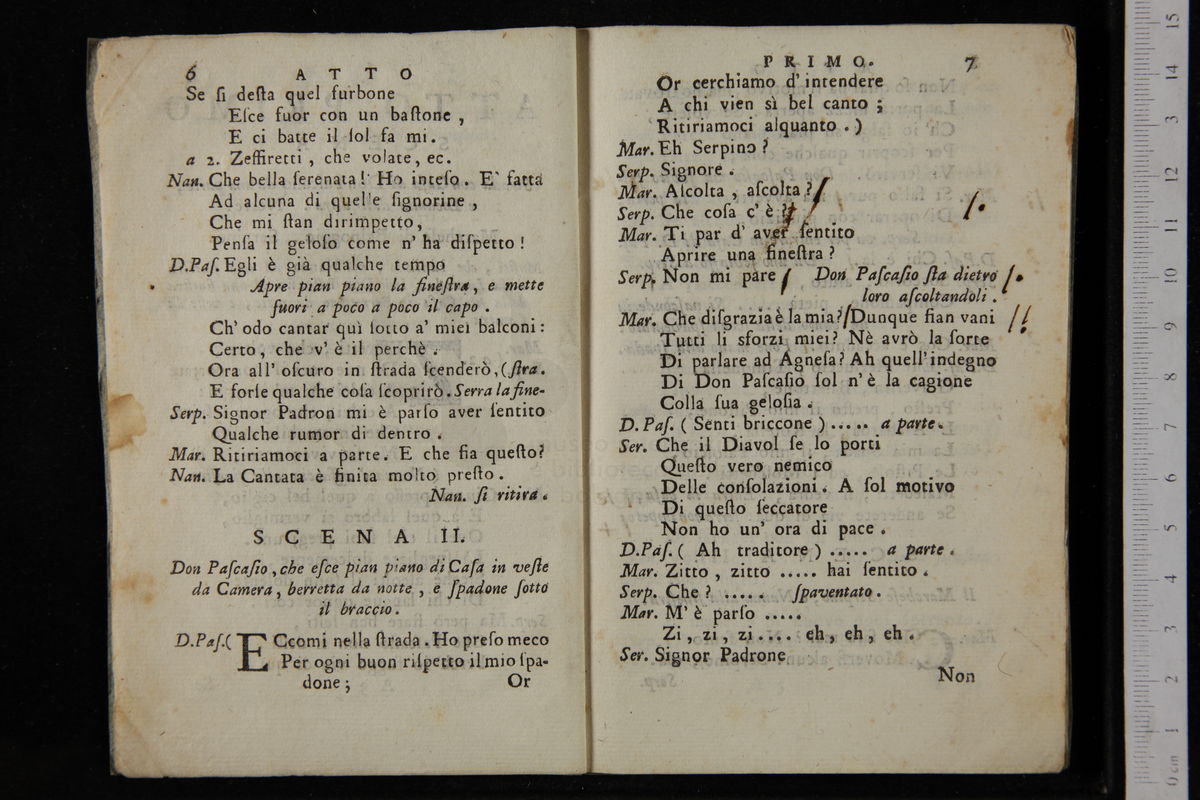 6 ATTO
Se ſi deſta quel furbone
Eſce fuor con un baſtone ,
E ci batte il ſol fa mi.
a 2. Zeffiretti , che volate, ec.
Nan. Che bella ſerenata! Ho inteſo. E' fatta
Ad alcuna di quel'e ſignorine ,
Che mi ſtan dirimpetto,
Penſa il geloſo come n' ha diſpetto !
D.Paſ. Egli è già qualche tempo
Apre pian piano la fineſtra, e mette
fuori a poco a poco il capo .
Ch' odo cantar quì ſotto a' miei balconi :
Certo, che v' è il perchè .
Ora all' oſcuro in ſtrada ſcenderò, (ſtra.
E forſe qualche coſa ſcoprirò. Serra la fine-
Serp. Signor Padron mi è parſo aver ſentito
Qualche rumor di dentro .
Mar. Ritiriamoci a parte. E che ſia queſto?
Nan. La Cantata è finita molto preſto .
Nan. ſi ritira.
SCENA II.
Don Paſcaſio, che eſce pian piano di Caſa in veſte
da Camera, berretta da notte , e ſpadone ſotto
il braccio.
D.Paſ.( ECcomi nella ſtrada. Ho preſo meco
Per ogni buon riſpetto il mio ſpa-
done ; Or
PRIMO. 7
Or cerchiamo d' intendere
A chi vien sì bel canto ;
Ritiriamoci alquanto . )
Mar. Eh Serpino ?
Serp. Signore .
Mar. Aſcolta , aſcolta ?
Serp. Che coſa c' è ?
Mar. Ti par d' aver ſentito
Aprire una fineſtra ?
Serp. Non mi pare Don Paſcaſio ſta dietro
loro aſcoltandoli .
Mar. Che diſgrazia è la mia? Dunque ſian vani
Tutti li sforzi miei? Nè avrò la ſorte
Di parlare ad Agneſa? Ah quell' indegno
Di Don Paſcaſio ſol n' è la cagione
Colla ſua geloſia .
D. Paſ. ( Senti briccone ) ..... a parte.
Ser. Che il Diavol ſe lo porti
Queſto vero nemico
Delle conſolazioni. A ſol motivo
Di queſto ſeccatore
Non ho un' ora di pace .
D.Paſ. ( Ah traditore ) ..... a parte .
Mar. Zitto , zitto ..... hai ſentito .
Serp. Che ? ..... ſpaventato .
Mar. M' è parſo .....
Zi , zi , zi .... eh, eh, eh .
Ser. Signor Padrone
Non